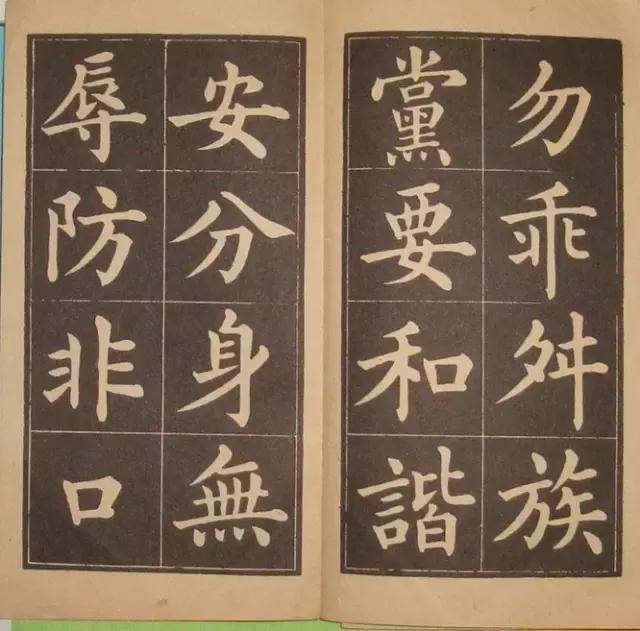 勿乖舛族
黨要和諧
安分身無
辱防非口